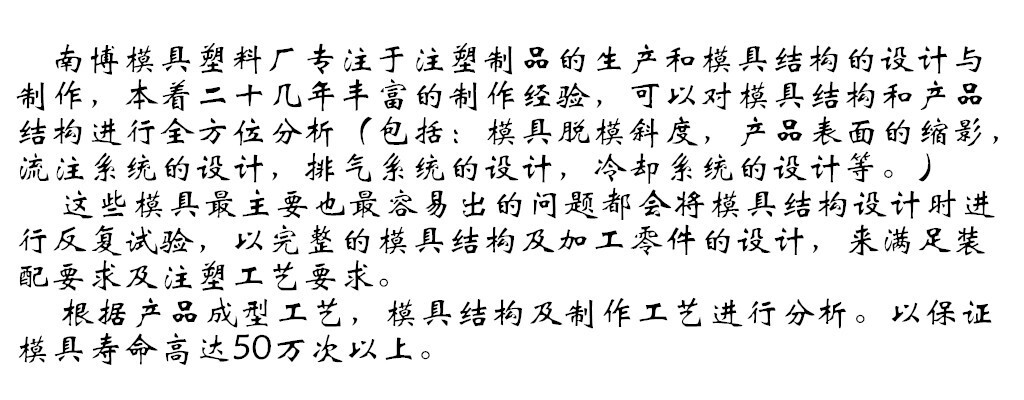 南博模具塑料厂专注于注塑制品的生产和模具结构的设计与
制作，本着二十几年丰富的制作经验，可以对模具结构和产品
结构进行全方位分析（包括：模具脱模斜度，产品表面的缩影，
流注系统的设计，排气系统的设计，冷却系统的设计等。）
这些模具最主要也最容易出的问题都会将模具结构设计时进
行反复试验，以完整的模具结构及加工零件的设计，来满足装
配要求及注塑工艺要求。
根据产品成型工艺，模具结构及制作工艺进行分析。以保证
模具寿命高达50万次以上。